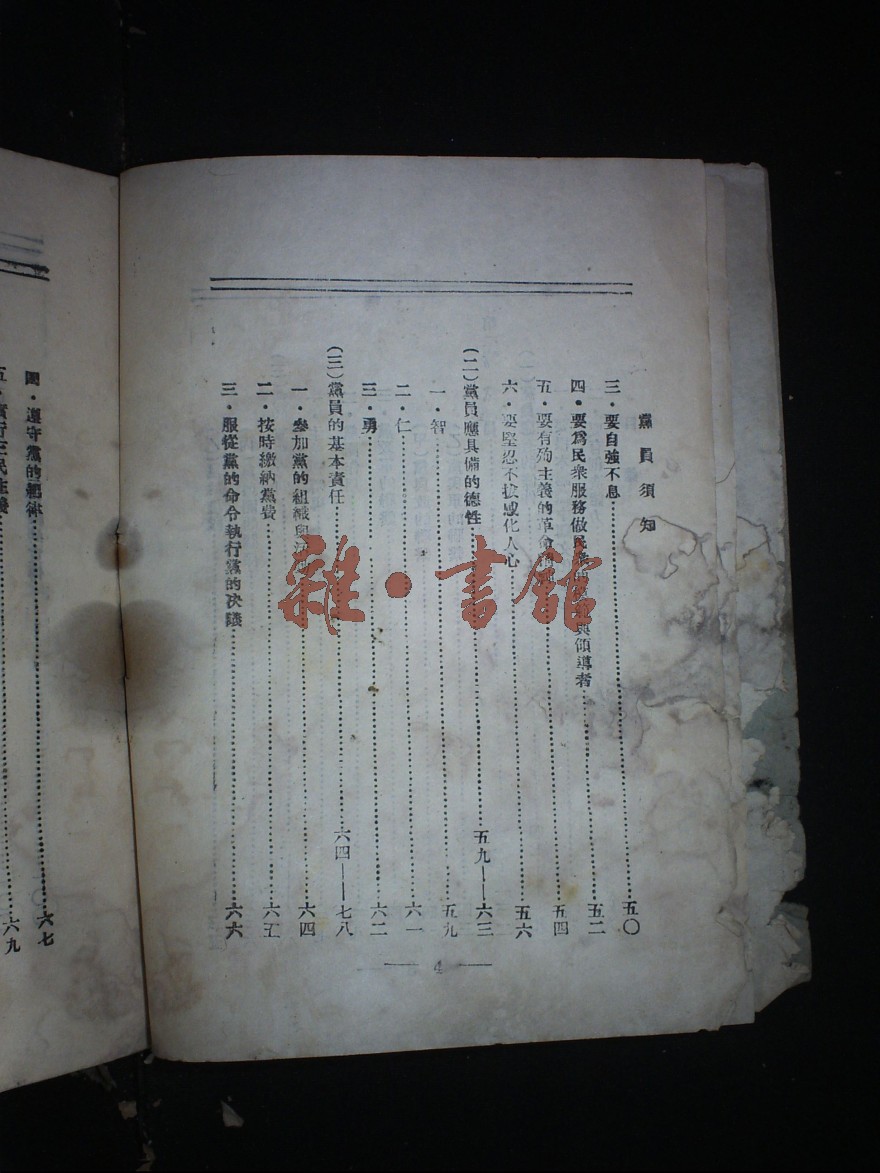 黨員須知
三・要自強不息……五〇
四・要為民衆服務做民衆的 與領導者……五二
五・要有殉主義的革命 ……五四
六・要堅忍不拔感化人心……五六
(二)黨員應具備的德性……五九——六三
一・智……五九
二・仁……六一
三・勇……六二
(三)黨員的基本責任……六四——七八
一・參加黨的組織與 ……六四
二・按時繳納黨費……六五
三・服從黨的命令執行黨的決議……六六
4
四・遵守黨的紀律……六七
五・實行三民主義……六九
雜・書館